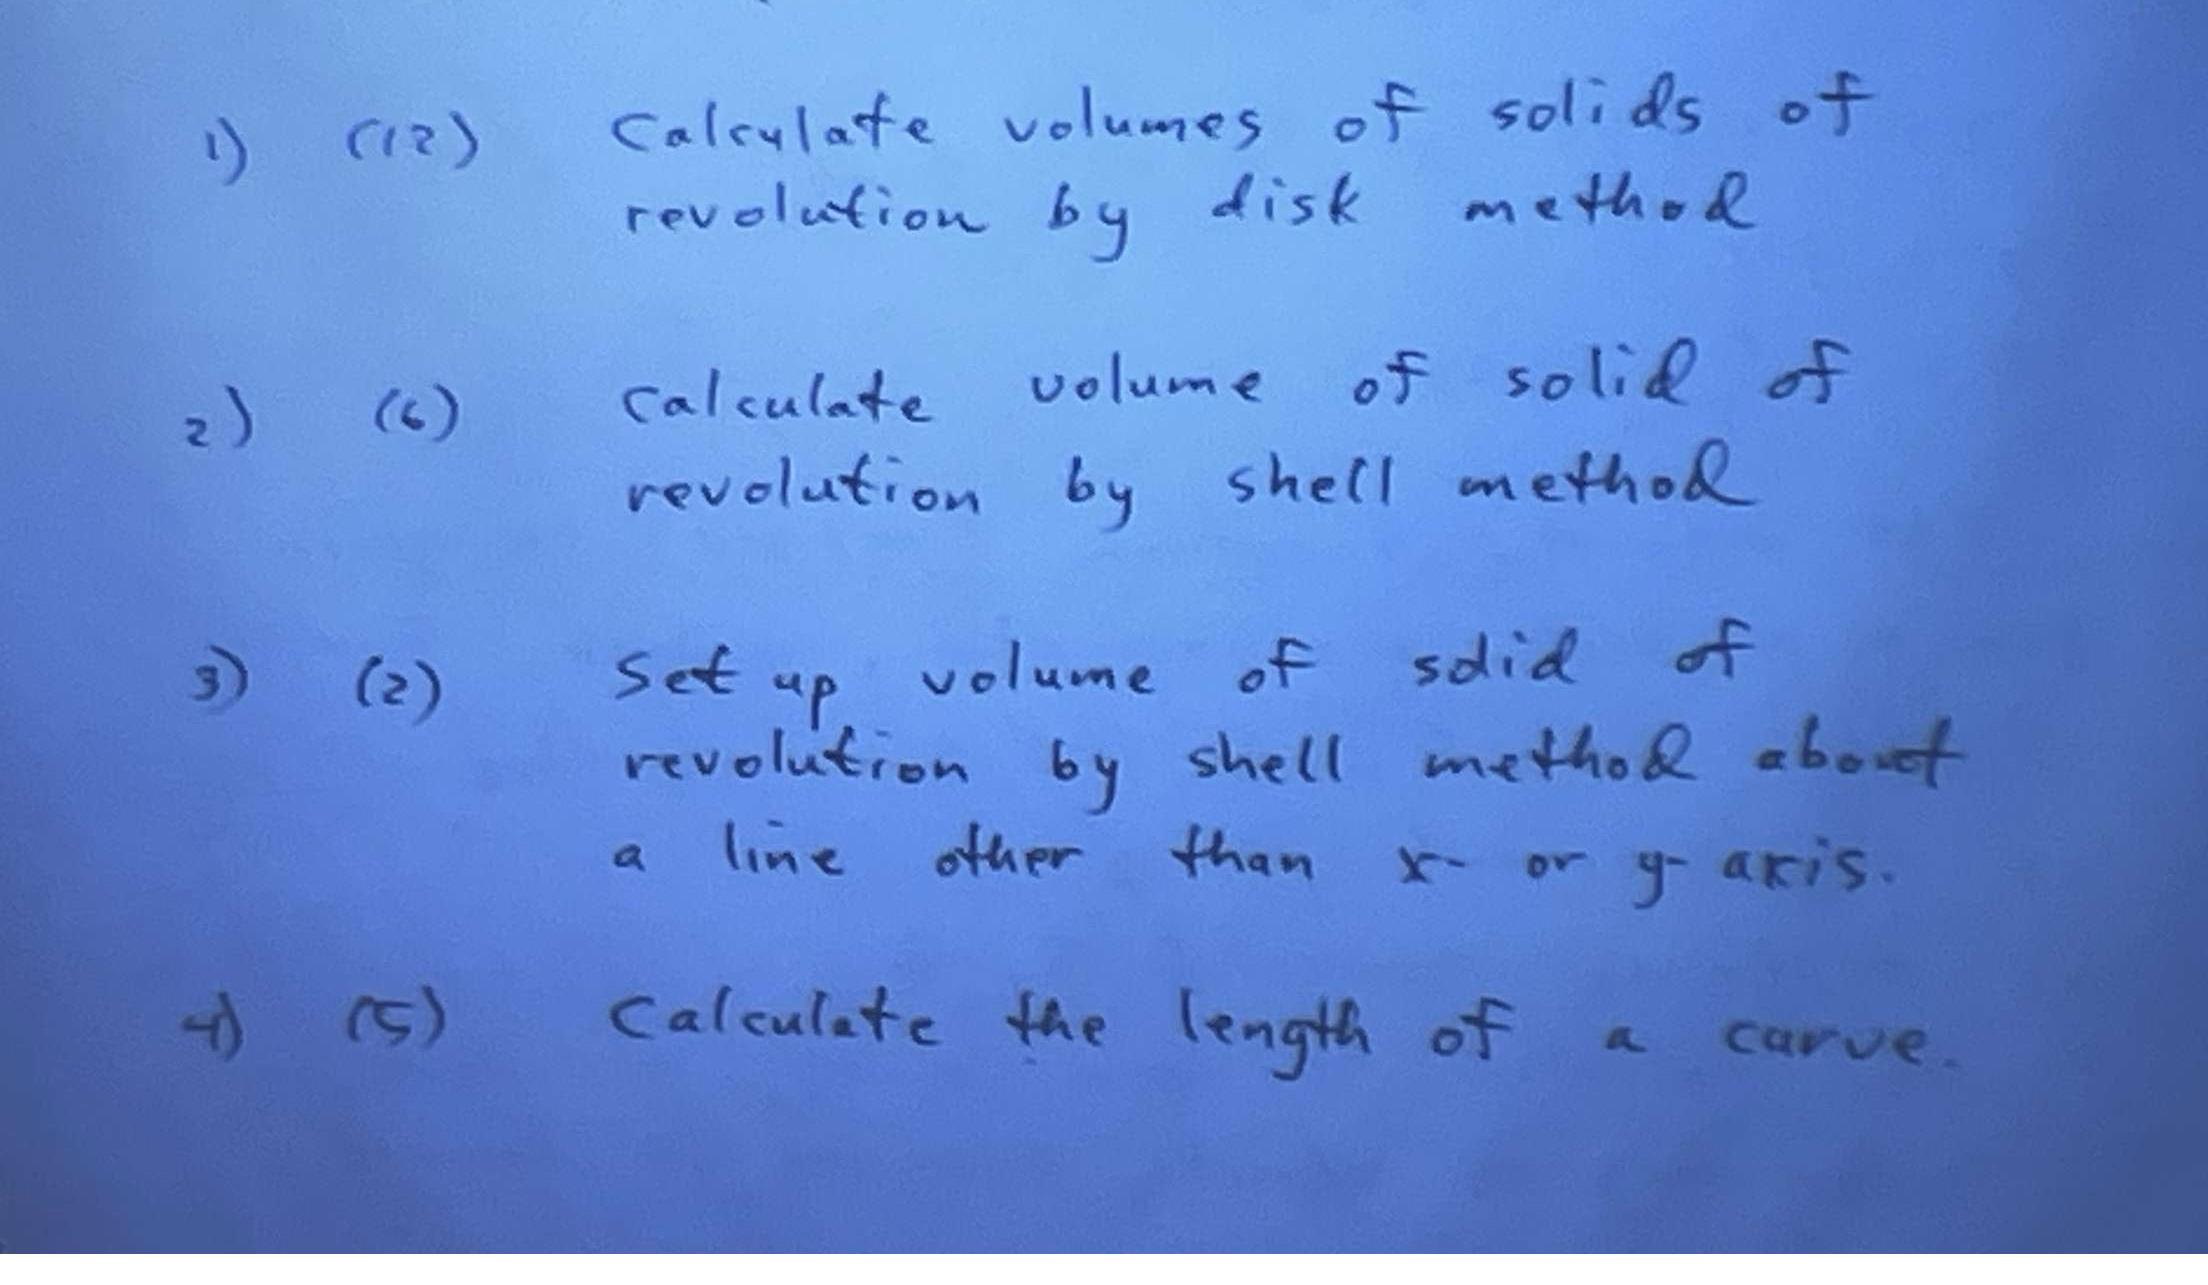 1) (12) Calculate volumes of solids of
revolution by disk method
2) (6) Calculate volume of solid of
revolution by shell method
3) (2) Set up volume of solid of
revolution by shell method about
a line other than x- or y- axis.
4) (5) Calculate the length of a curve.